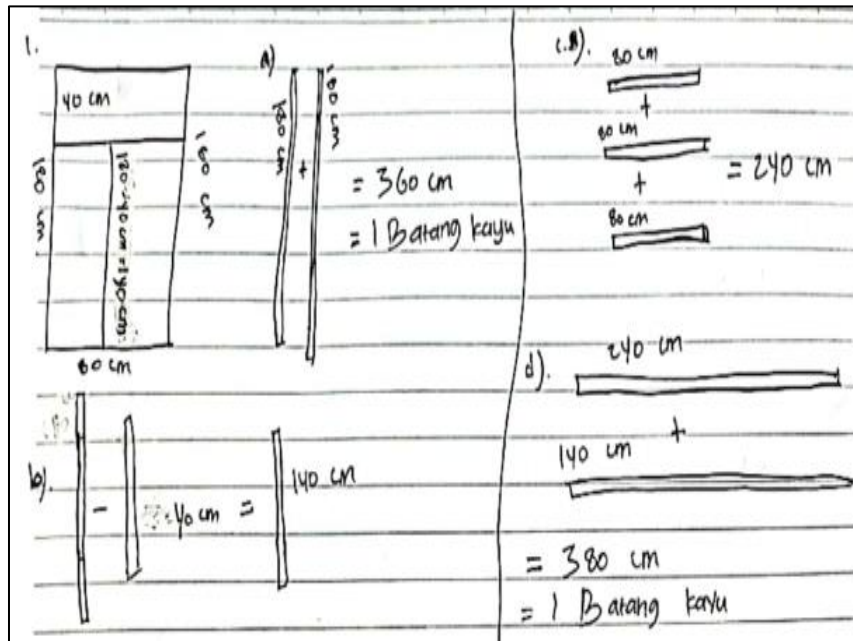 1.
40 cm
180 cm
180-40 cm = 140 cm
180 cm
80 cm
a)
180 cm
+
180 cm
= 360 cm
= 1 Batang kayu
b).
-
40 cm
=
140 cm
80 cm
+
80 cm
+
80 cm
= 240 cm
d).
240 cm
+
140 cm
= 380 cm
= 1 Batang kayu